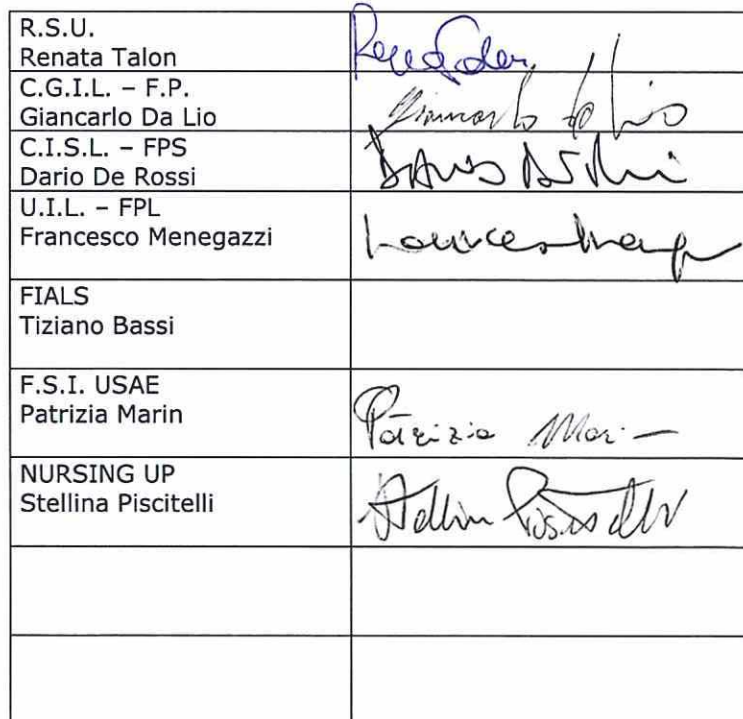 R.S.U.
Renata Talon
C.G.I.L. – F.P.
Giancarlo Da Lio
Giancarlo Da Lio
C.I.S.L. – FPS
Dario De Rossi
U.I.L. – FPL
Francesco Menegazzi
FIALS
Tiziano Bassi
F.S.I. USAE
Patrizia Marin
Patrizia Marin
NURSING UP
Stellina Piscitelli